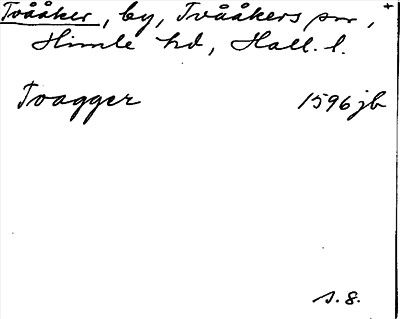 Tvååker, by, Tvååkers sn, +
Himle hd, Hall. l.
Tvagger 1596 jb
s. 8.